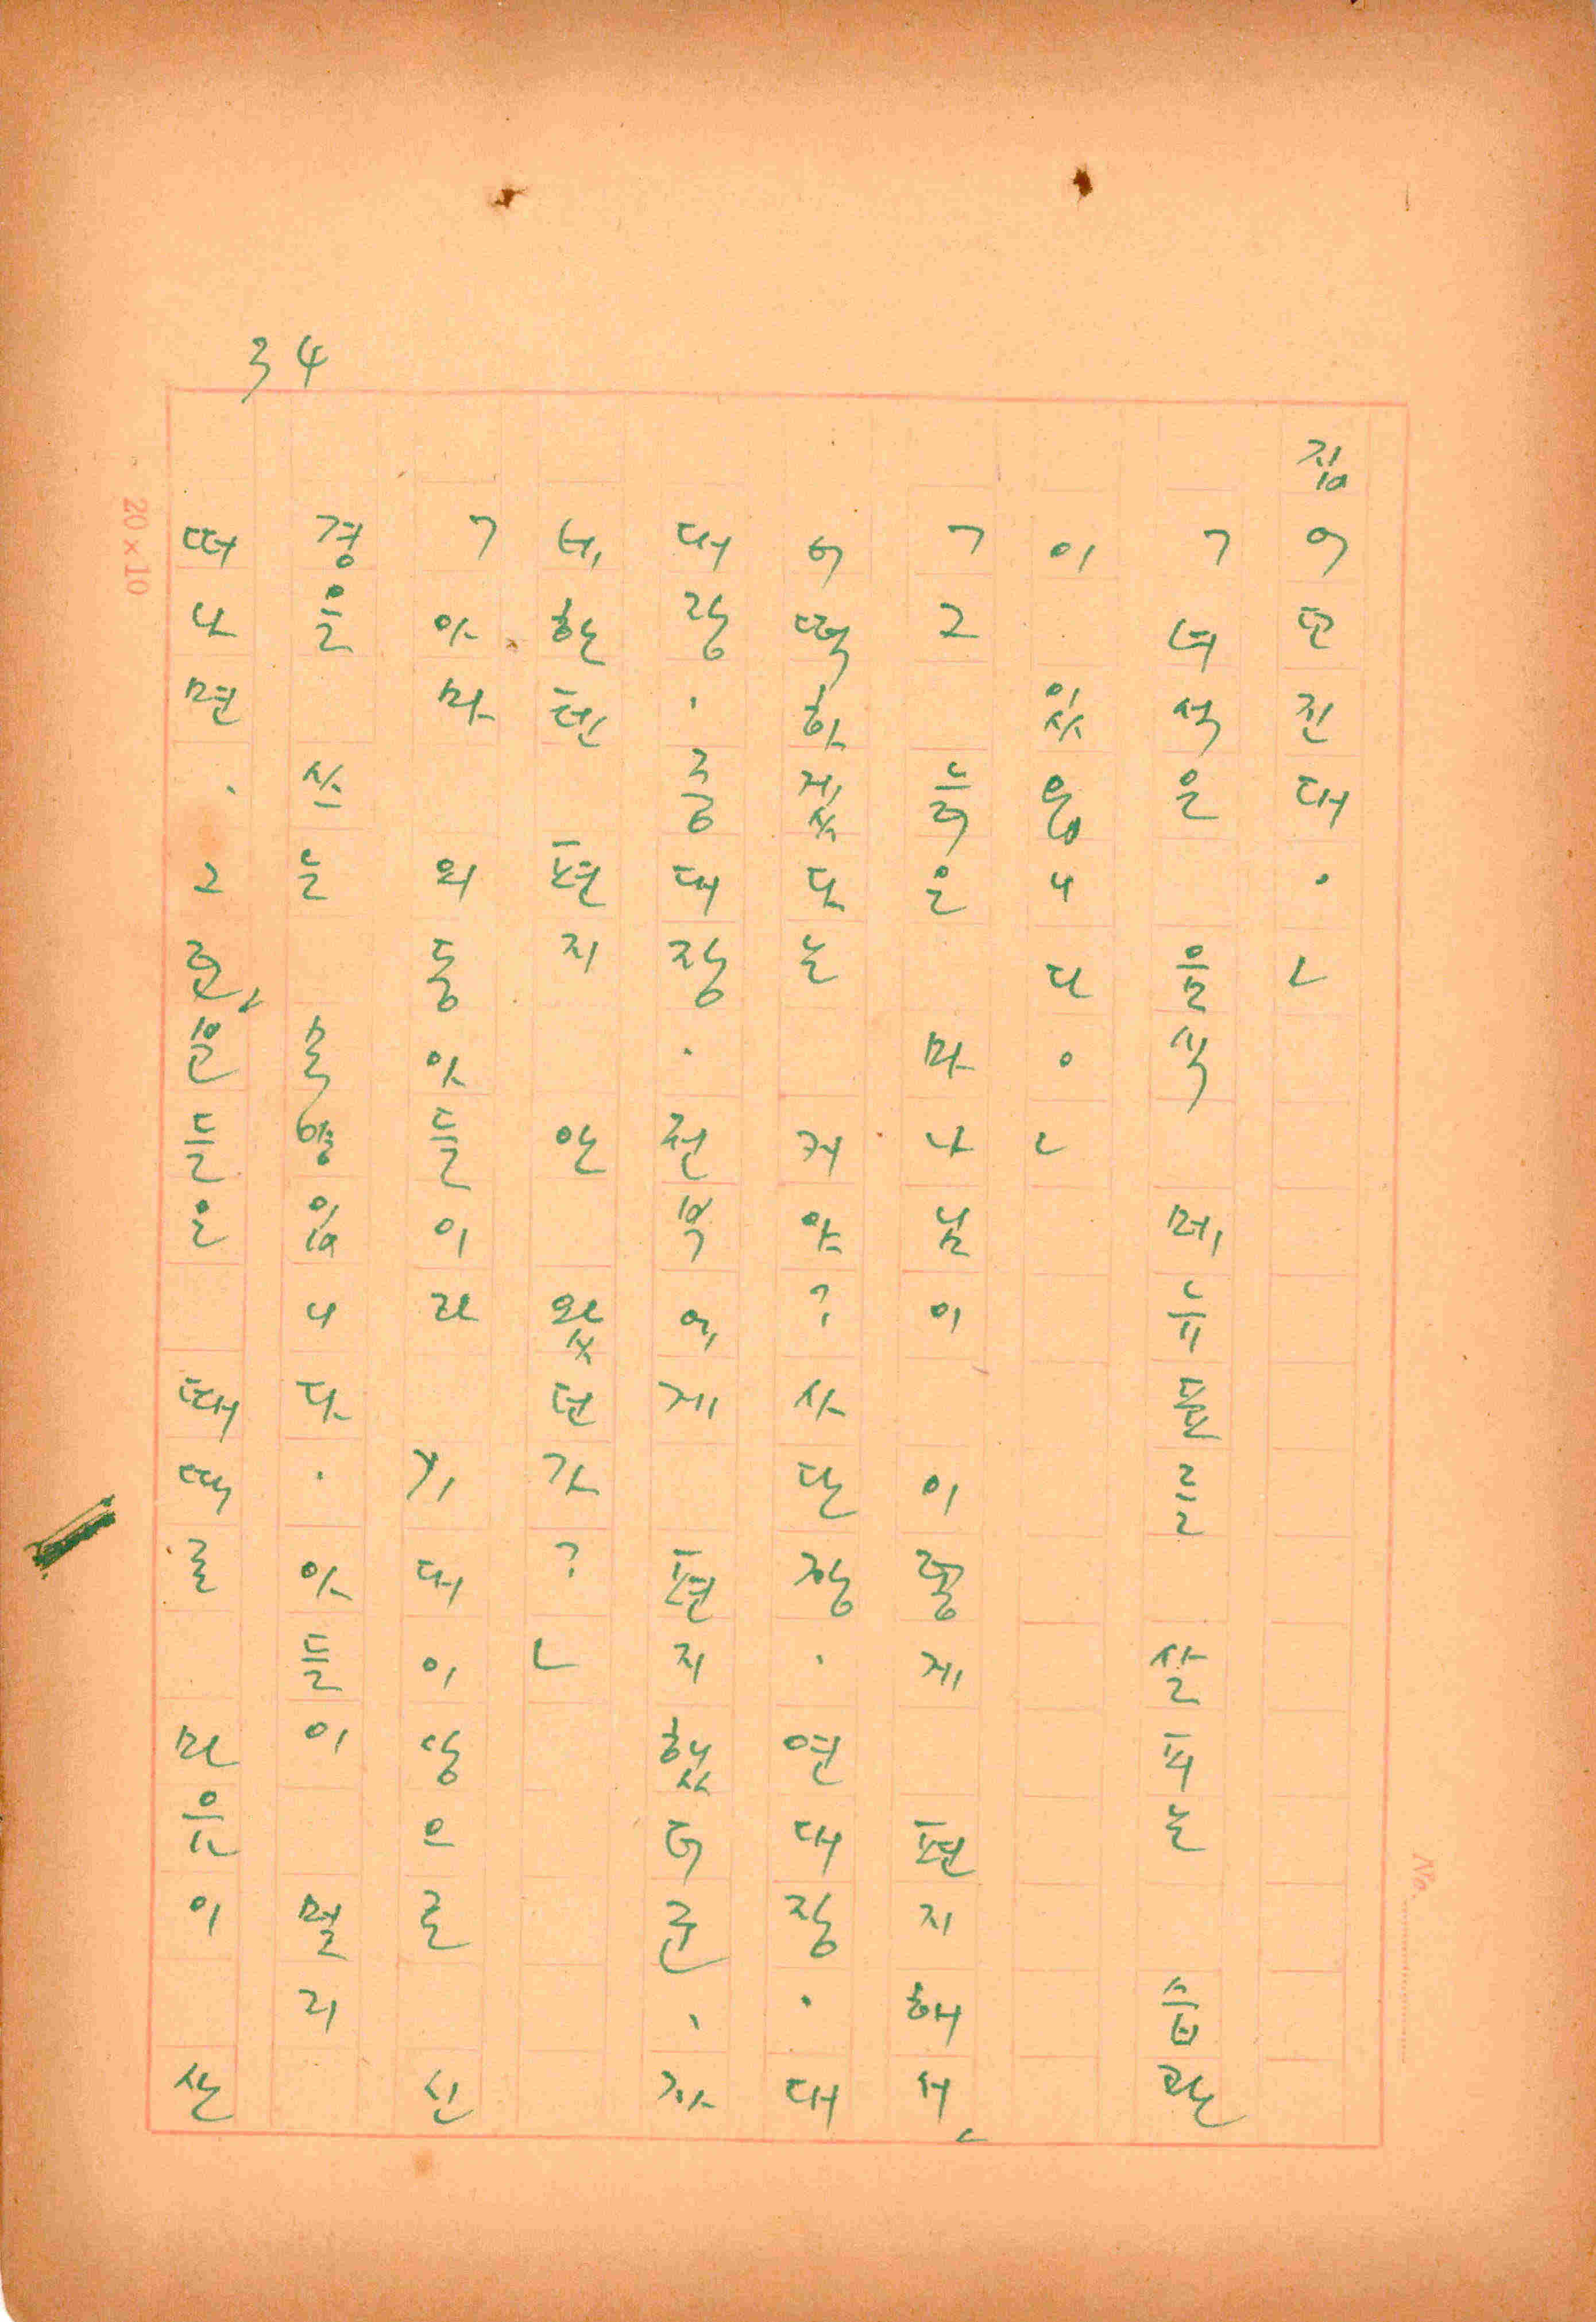 34
집어던진대.」
「녀석은 음식 메뉴들를 살피는 습관
이 있읍니다.」
「그 늙은 마나님이 이렇게 편지해서」
어떡하겠다는 거야? 사단장.연대장.대
대장.중대장.전부에게 편지했더군, 자
네한텐 편지 안 왔던가?」
「아마 외동아들이라 기대 이상으로 신
경을 쓰는 모양입니다.아들이 멀리
떠나면.그런 분들은 때때로 마음이 산
20×10
No.